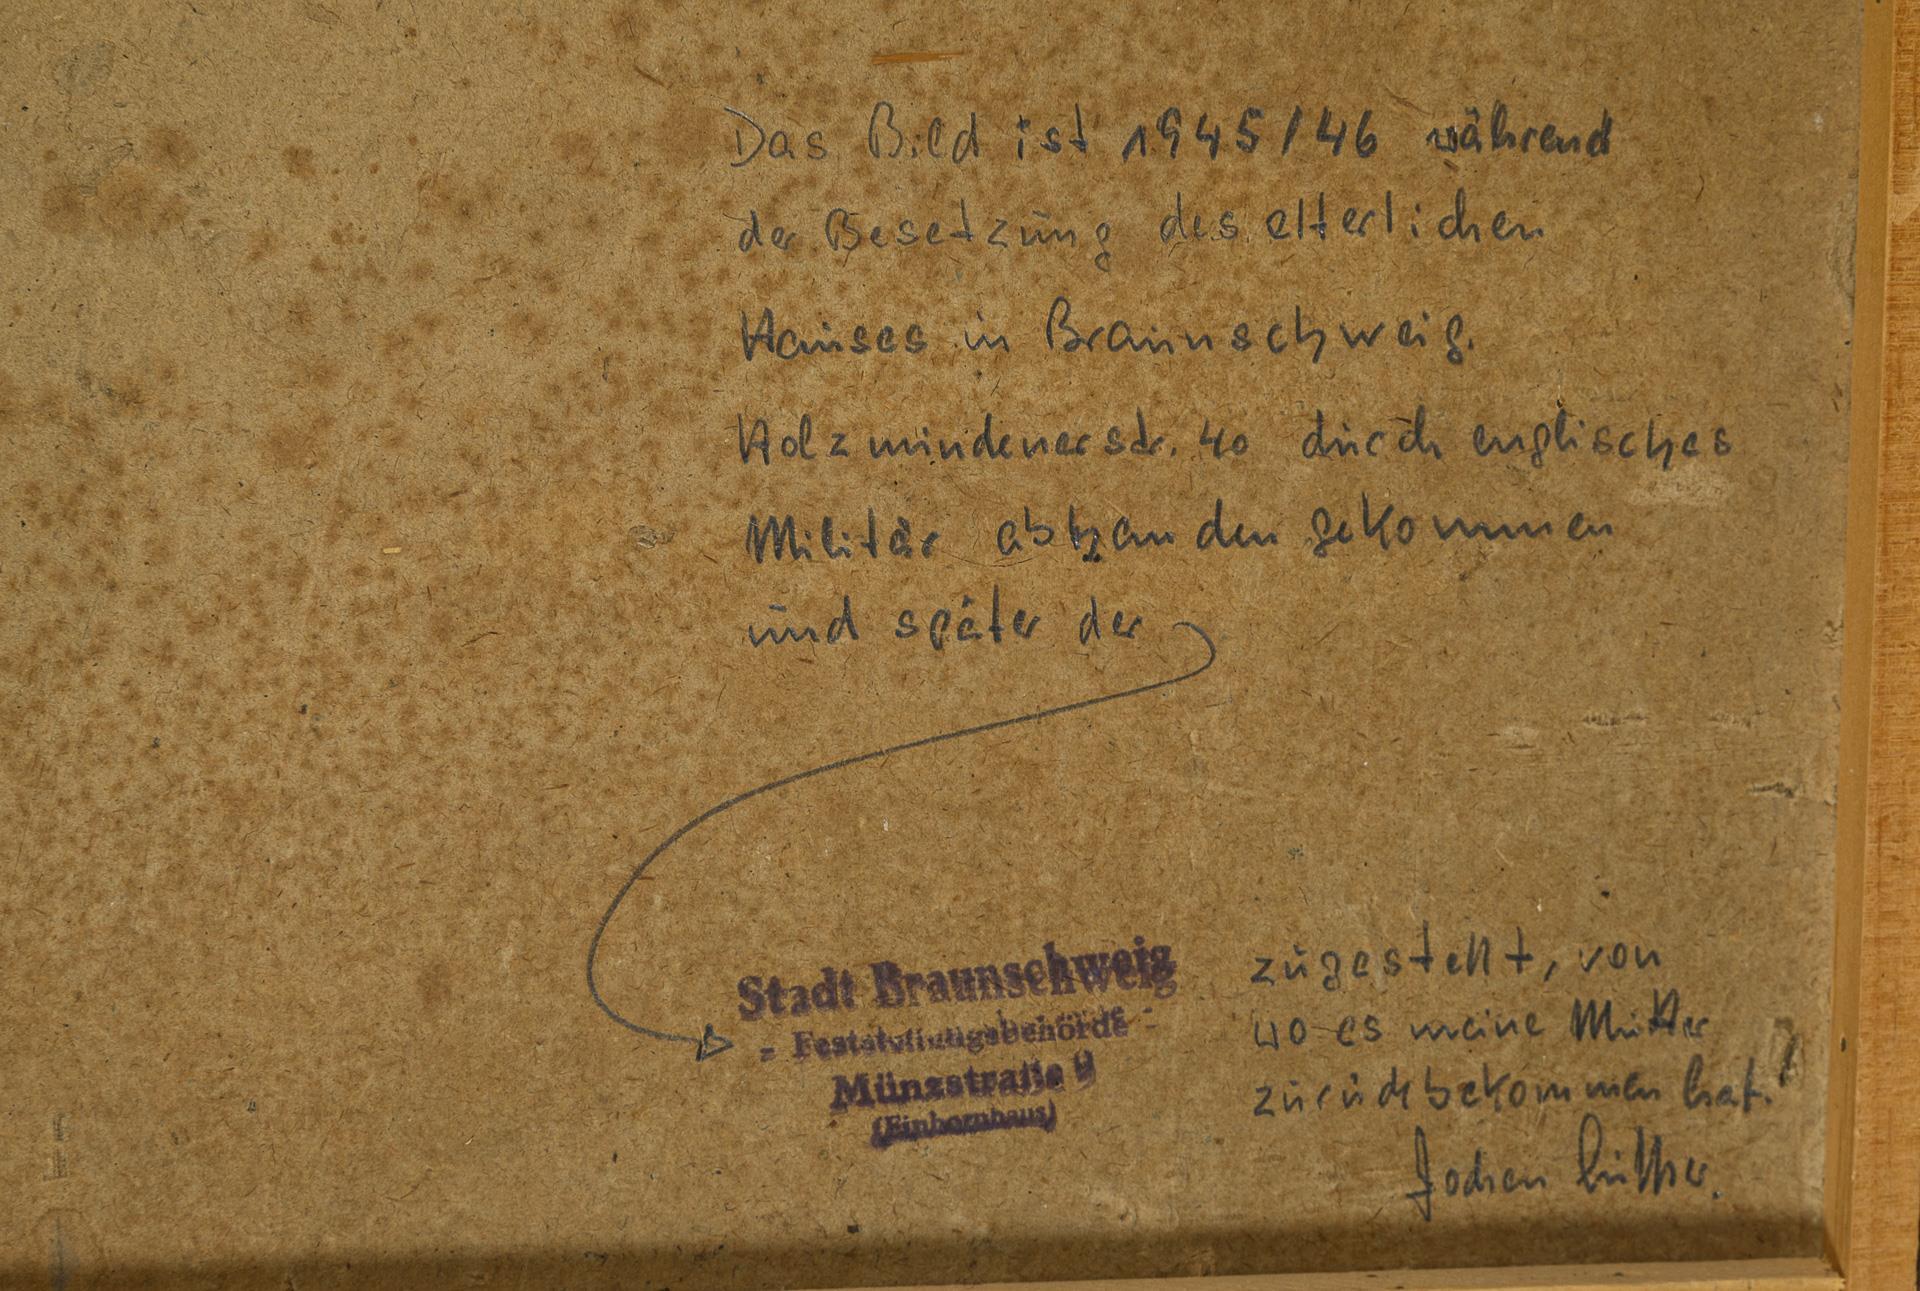 Das Bild ist 1945/46 während
der Besetzung des elterlichen
Hauses in Braunschweig.
Holzmindenerstr. 40 durch englisches
Militär abhanden gekommen
und später der
Stadt Braunschweig
- Feststellungsbehörde -
Münzstraße 9
(Einhornhaus)
zugestellt, von
wo es meine Mutter
zurückbekommen hat.
Jochen Lüther.